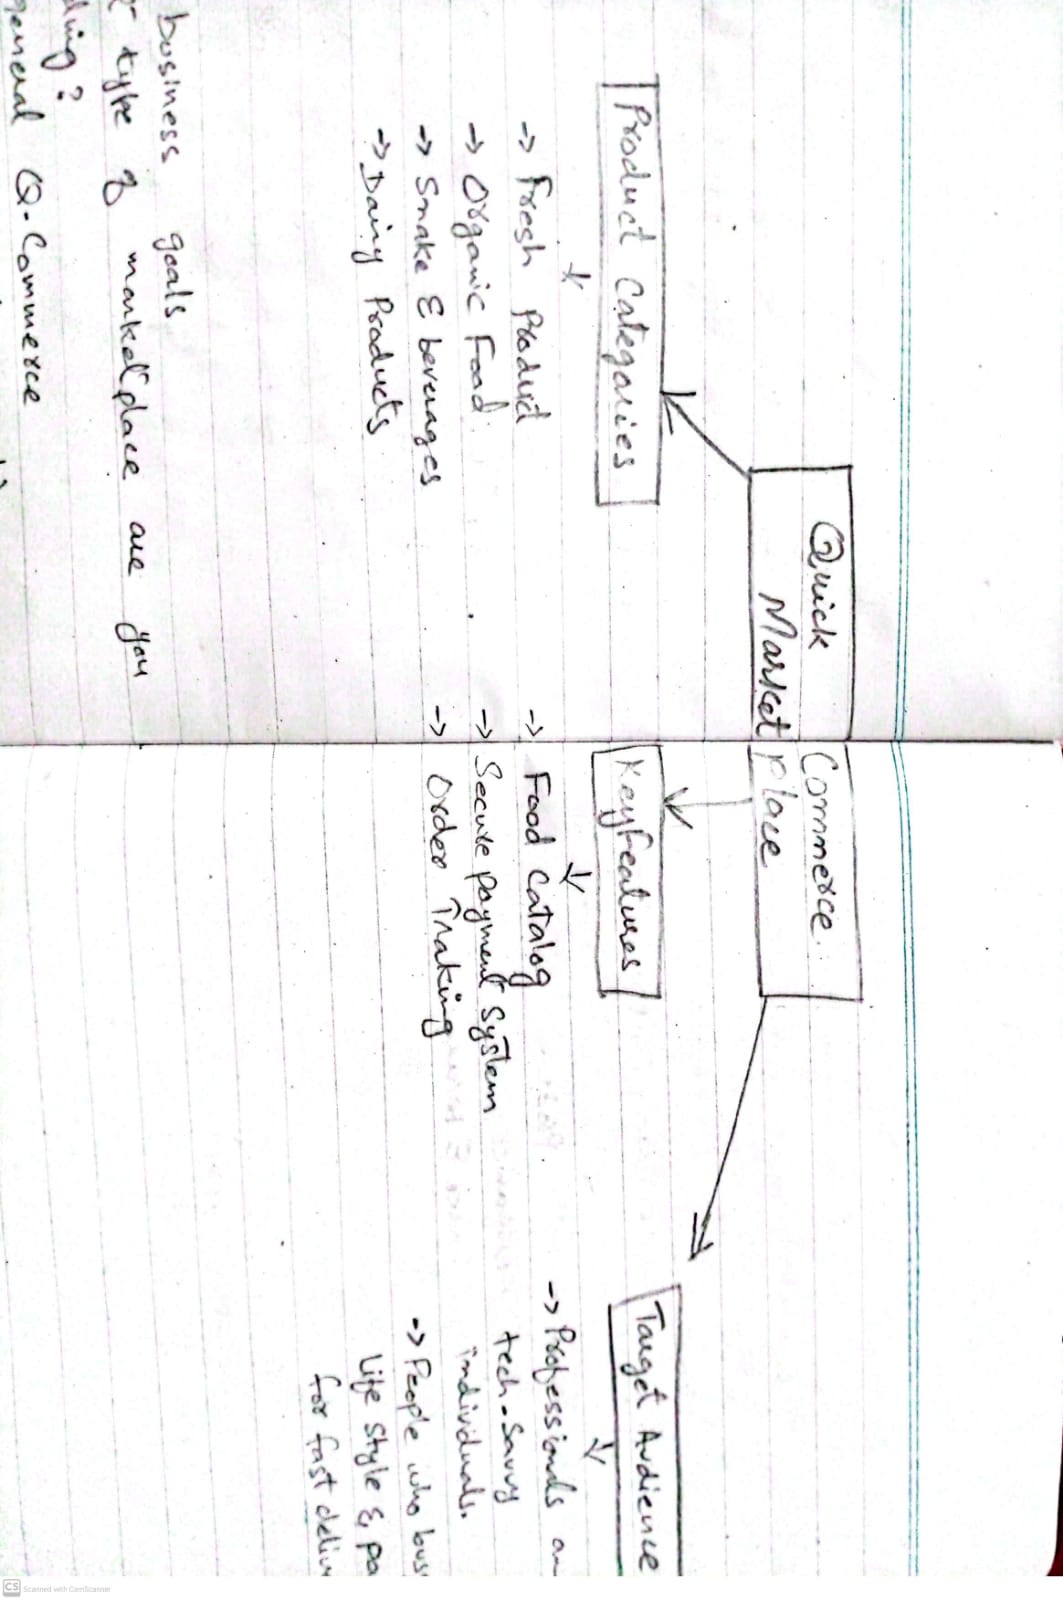 Quick Commerce
Market place
Product Categories
Fresh Product
-> Organic Food
-> Snake & beverages
-> Dairy Products
KeyFeatures
-> Food Catalog
-> Secure payment System
-> Order Traking
Target Audience
-> Professionals
tech-Savvy
individuals.
-> People who
Life Style &
for fast
business goals
type of marketplace are you
?
general Q-Commerce
CS Scanned with CamScanner